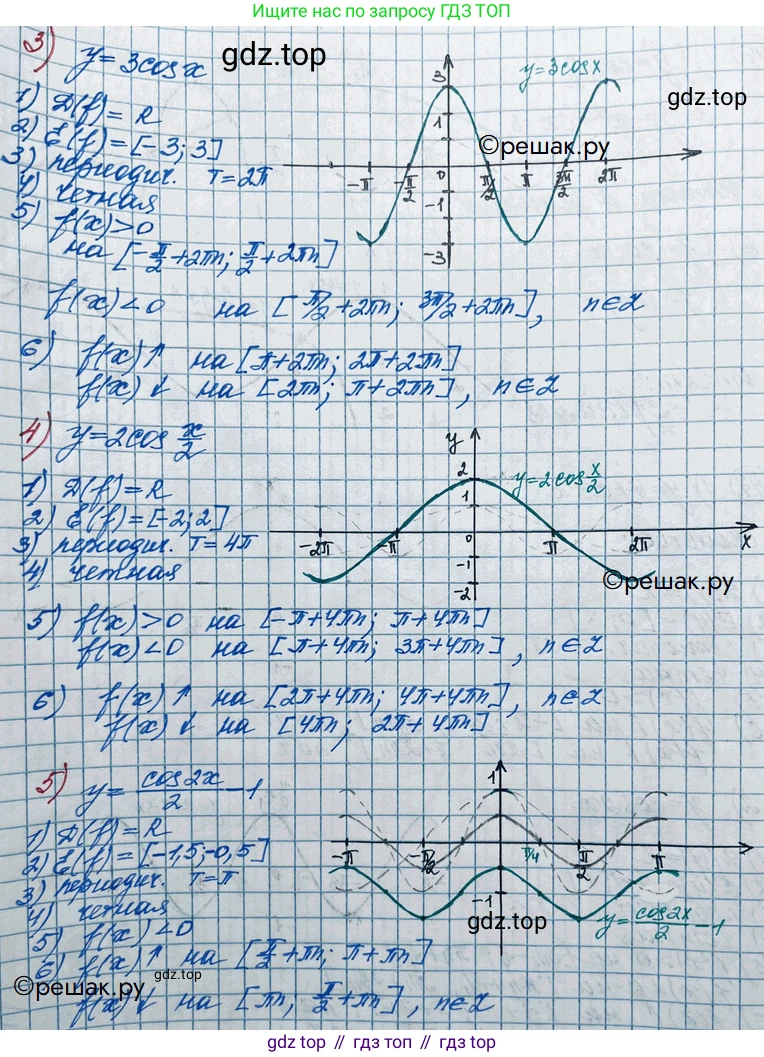 Ищите нас по запросу ГДЗ ТОП
3) y = 3cos x
gdz.top
y=3cosx
gdz.top
©решак.ру
1) D(f) = R
2) E(f) = [-3; 3]
3) периодич. T = 2π
4) четная
5) f(x)>0
на [-π/2+2πn; π/2+2πn]
3
1
-π
-π/2
0
π/2
π
3π/2
2π
-1
-3
f(x)<0 на [π/2+2πn; 3π/2+2πn], n∈Z
6) f(x)↑ на [π+2πn; 2π+2πn]
f(x)↓ на [2πn; π+2πn], n∈Z
4) y=2cos x/2
1) D(f)=R
2) E(f)=[-2;2]
3) периодич. T=4π
4) четная
y
2
y=2cos x/2
1
-2π
-π
0
π
2π
x
-1
-2
©решак.ру
5) f(x)>0 на [-π+4πn; π+4πn]
f(x)<0 на [π+4πn; 3π+4πn], n∈Z
6) f(x)↑ на [2π+4πn; 4π+4πn], n∈Z
f(x)↓ на [4πn; 2π+4πn]
5) y= cos2x/2 -1
1) D(f)=R
2) E(f)=[-1,5;-0,5]
3) периодич. T=π
4) четная
5) f(x)<0
6) f(x)↑ на [π/2+πn; π+πn]
f(x)↓ на [πn; π/2+πn], n∈Z
1
-π
-π/2
π/4
π/2
π
-1
gdz.top
y= cos2x/2 -1
gdz.top
©решак.ру
gdz.top // гдз топ // гдз.топ